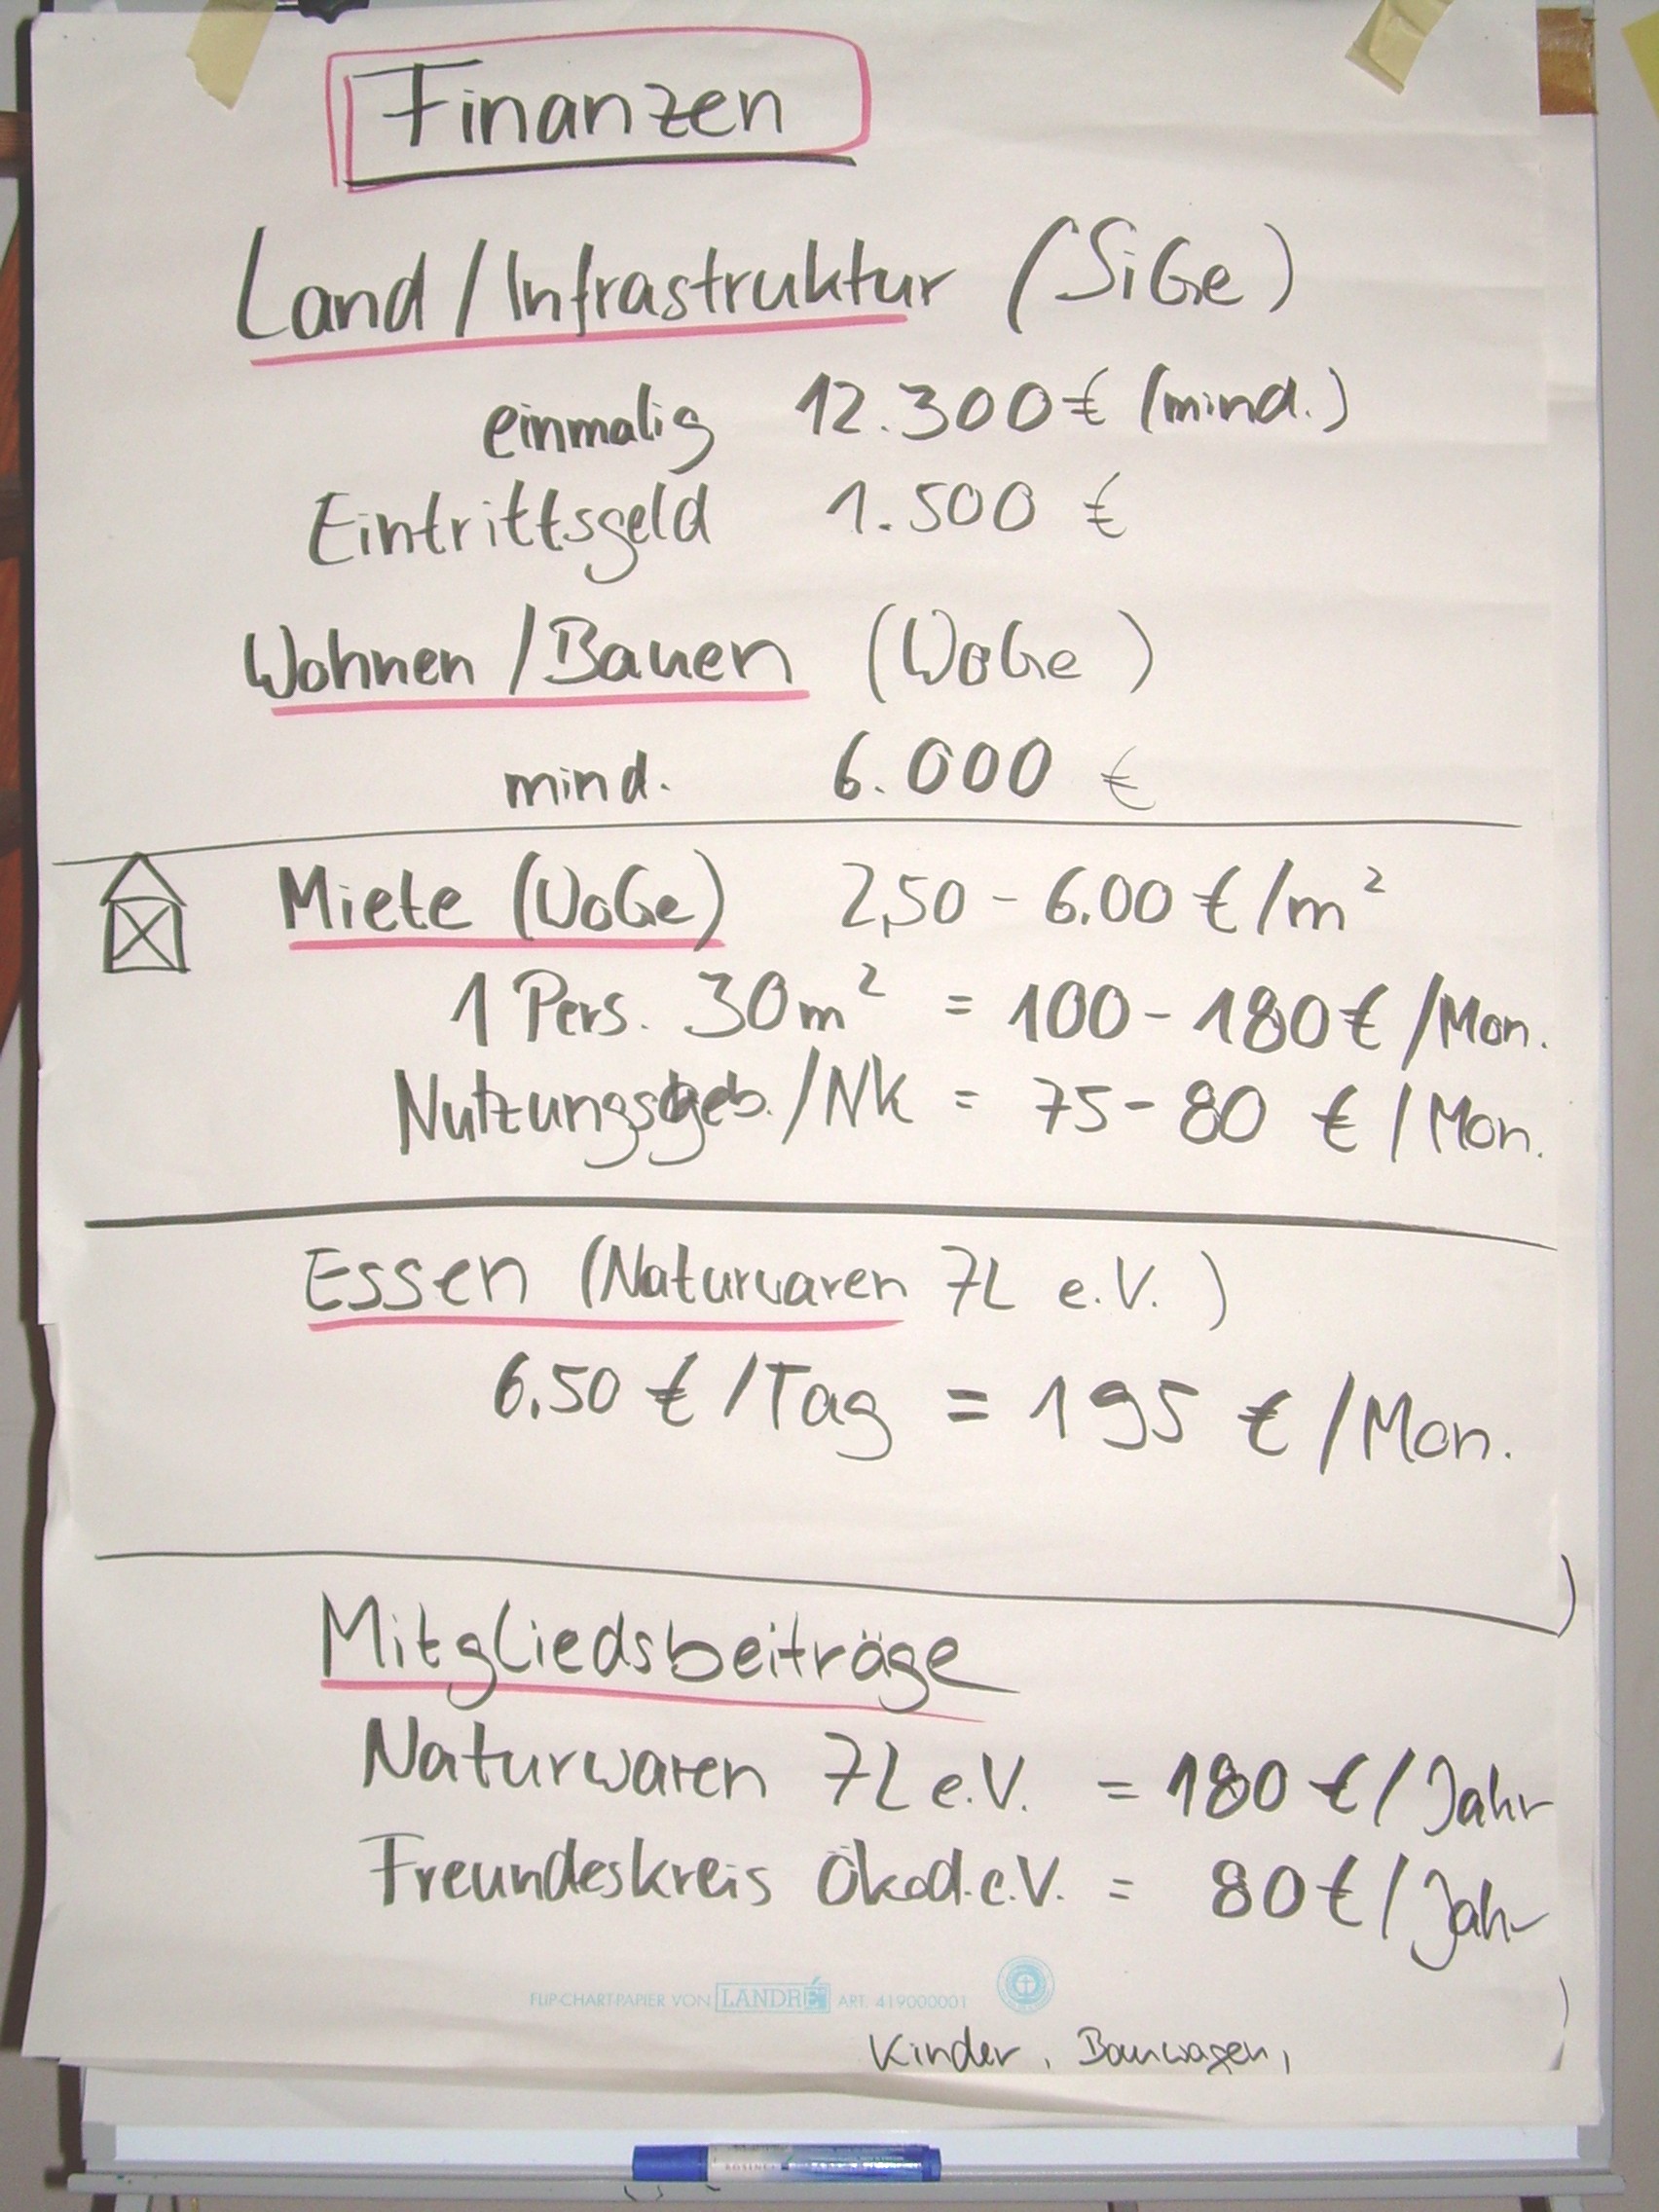 Finanzen
Land/Infrastruktur (SiGe)
einmalig 12.300€ (mind.)
Eintrittsgeld 1.500 €
Wohnen/Bauen (WoGe)
mind. 6.000 €
Miete (WoGe) 2,50 - 6.00 €/m²
1 Pers. 30m² = 100 - 180€/Mon.
Nutzungsgeb./NK = 75 - 80 €/Mon.
Essen (Naturwaren 7L e.V.)
6.50 €/Tag = 195 €/Mon.
Mitgliedsbeiträge
Naturwaren 7L e.V. = 180 €/Jahr
Freundeskreis Ökod. e.V. = 80€/Jahr
FLIP-CHART-PAPIER VON LANDRÉ ART. 419000001
Kinder, Bauwagen,